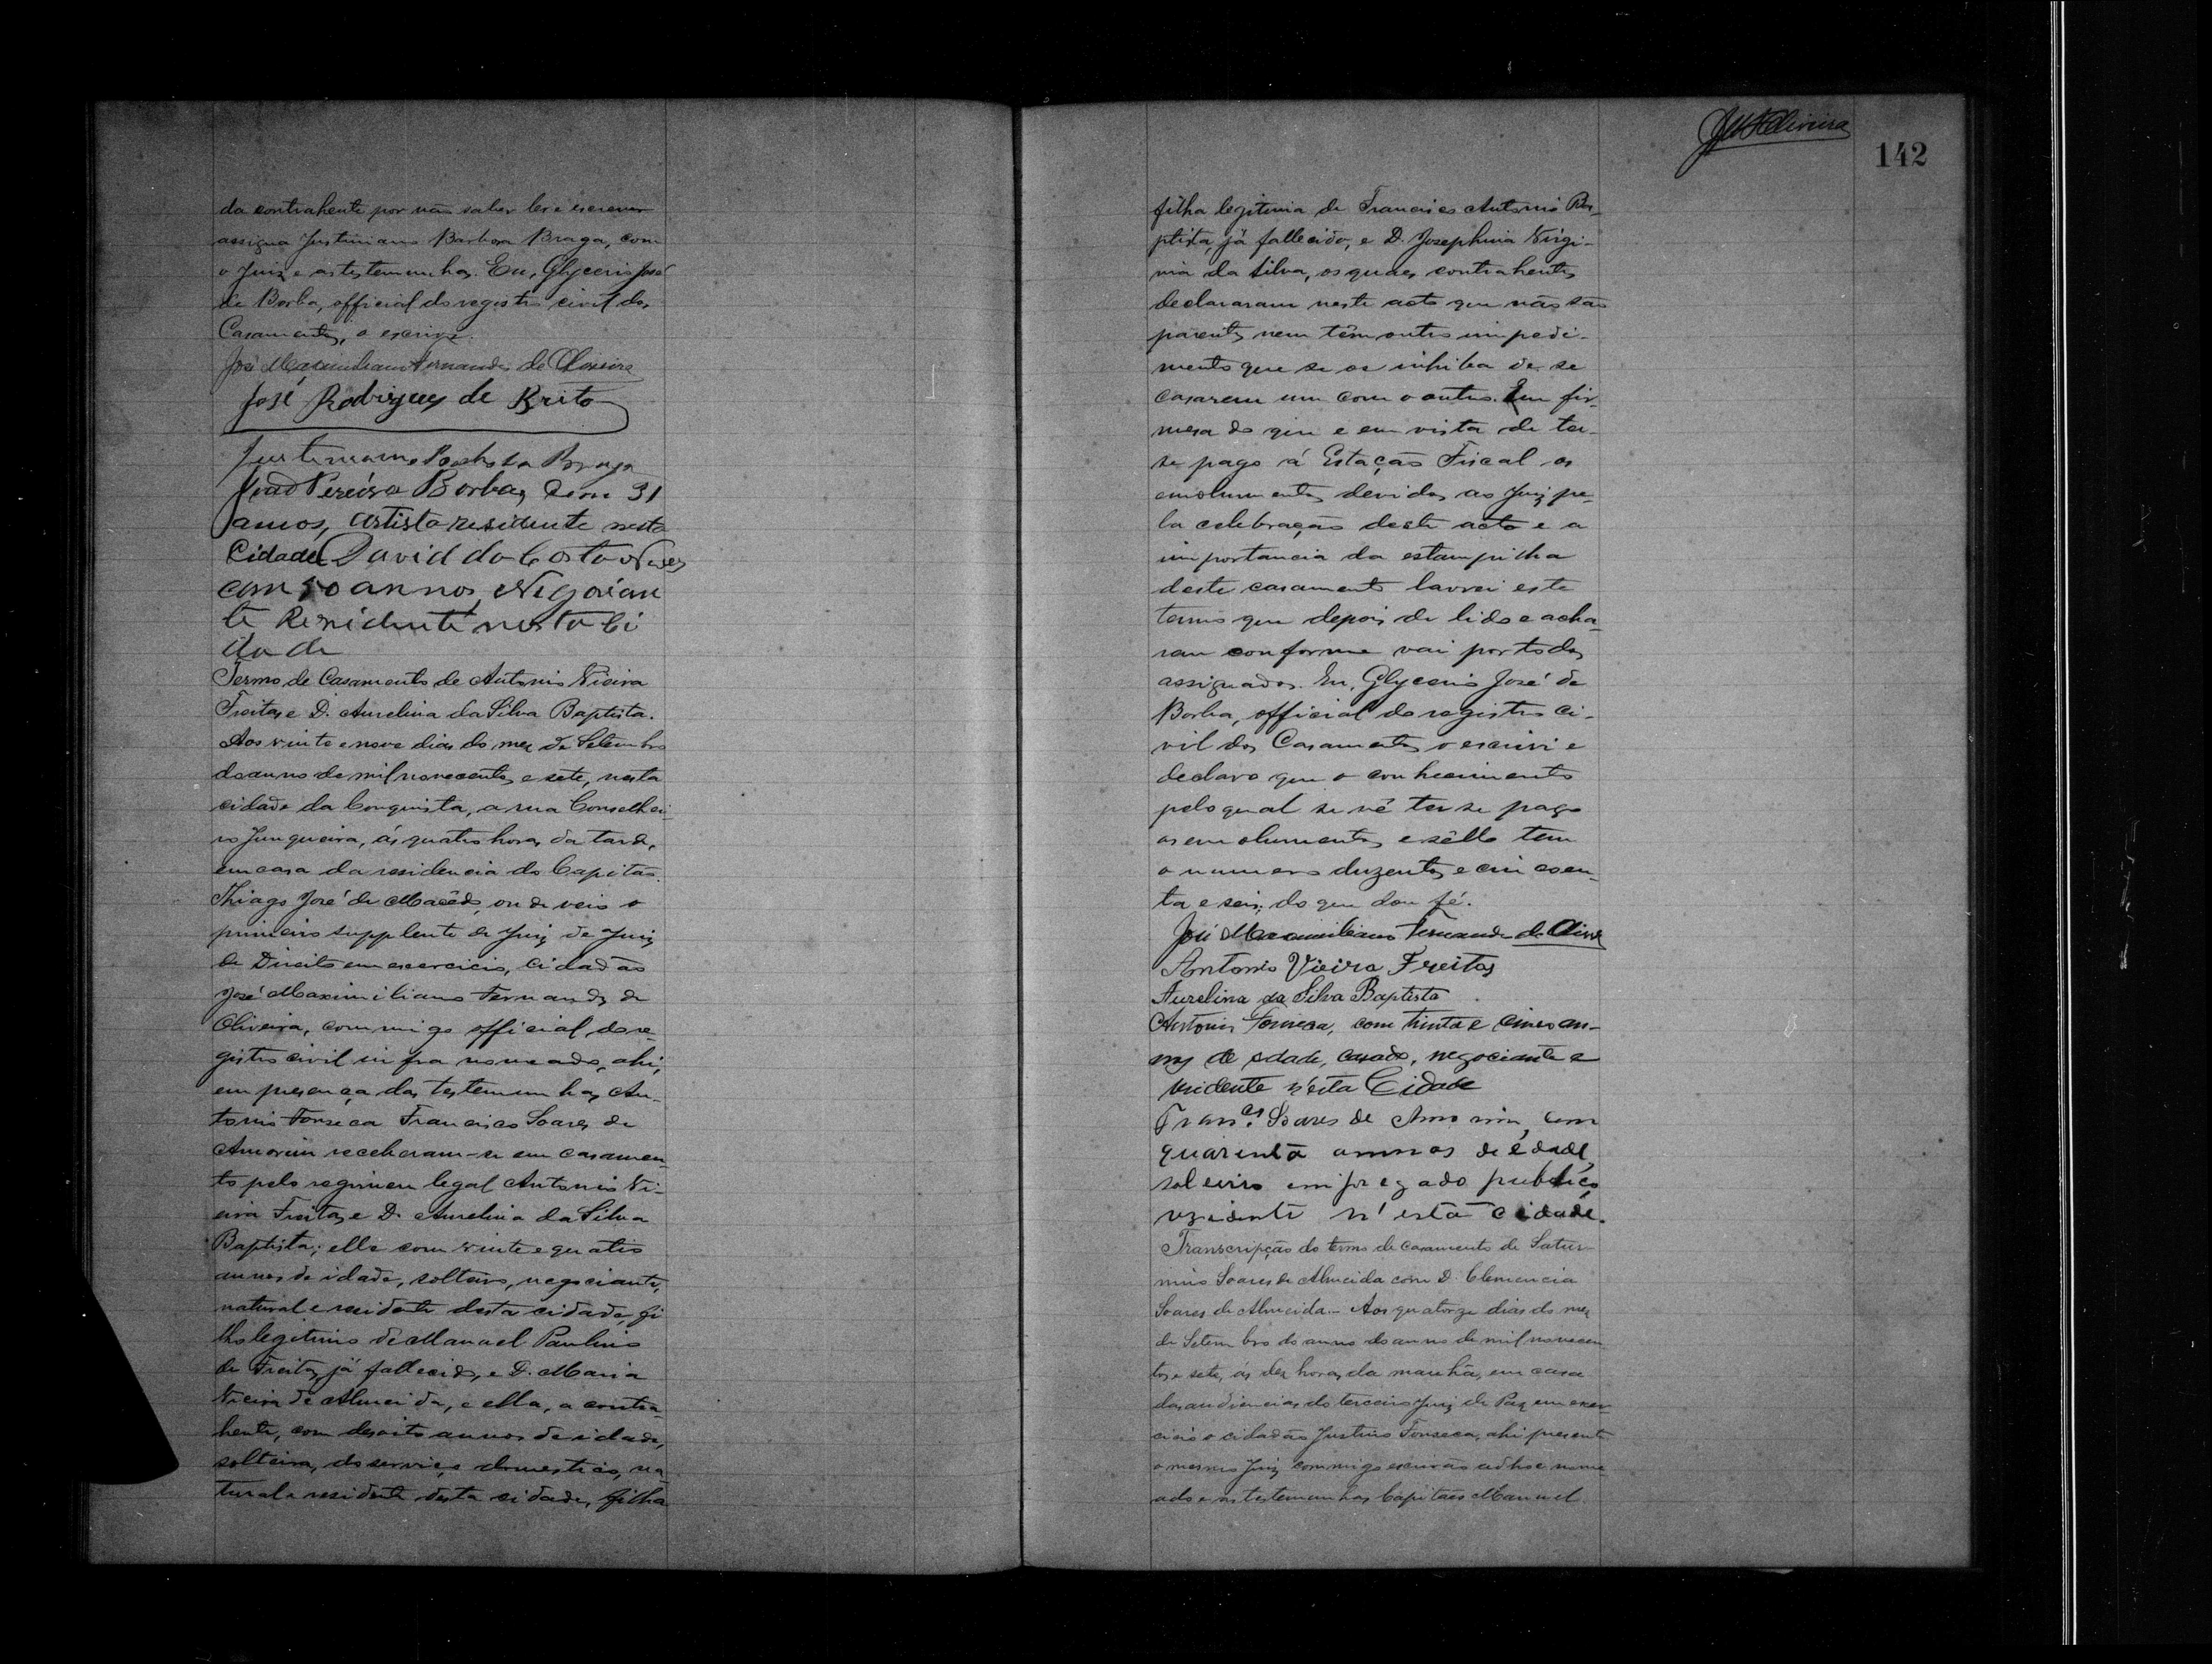 da contrahente por não saber ler e escrever
assigna Justiniano Barbosa Braga, com
o Juiz e as testemunhas. Eu, Glycerio José
de Borba, official do registro civil dos
Casamentos, o escrivi.
José Maximiliano Fernandes de Oliveira
José Rodrigues de Brito
Justiniano Barbosa Braga
João Pereira Borbas, com 31
annos, artista residente nesta
Cidade David da Costa
com 50 annos, Negocian
te Rezidente nesta Ci
dade
Termo de Casamento de Antonio Vieira
Freitas e D. Aurelina da Silva Baptista.
Aos vinte e nove dias do mez de Setembro
do anno de mil novecentos e sete, nesta
cidade da Conquista, a rua Conselhei
ro Junqueira, ás quatro horas da tarde,
em casa da residencia do Capitão
Thiago José de Macêdo, onde veio o
primeiro supplente de Juiz de Juiz
de Direito em exercicio, cidadão
José Maximiliano Fernandes de
Oliveira, commigo official do re-
gistro civil infra nomeado, ahi,
em presença das testemunhas An-
tonio Fonseca Francisco Soares de
Amorim receberam-se em casamen-
to pelo regimen legal Antonio Vi-
eira Freitas e D. Aurelina da Silva
Baptista; elle com vinte e quatro
annos de idade, solteiro, negociante,
natural e residente desta cidade, fi
lho legitimo de Manoel Paulino
de Freitas, já fallecido, e D. Maria
Vieira de Almeida, e ella, a contra-
hente, com desoito annos de idade,
solteira, do serviço domestico, na-
tural e residente desta cidade, filha
JMFOliveira
142
filha legitima de Francisco Antonio Ba-
ptista, já fallecido, e D. Josephina Virgi-
nia da Silva, os quaes contrahentes
declararam neste acto que não são
parentes nem têm outro impedi-
mento que se os inhiba de se
casarem um com o outro. Em fir-
mesa do que e em vista de ter-
se pago á Estação Fiscal os
emolumentos devidos ao Juiz pe-
la celebração deste acto e a
importancia da estampilha
deste casamento lavrei este
termo que depois de lido e acha-
ram conforme vai por todos
assignados. Eu, Glycerio José de
Borba, official do registro ci-
vil dos Casamentos o escrivi e
declaro que o conhecimento
pelo qual se vê ter se pago
os emolumentos e sêllo tem
o numero duzentos e cincoen-
ta e seis; do que dou fé.
José Maximiliano Fernandes de Oliveira
Antonio Vieira Freitas
Aurelina da Silva Baptista
Antonio Fonseca, com trinta e cinco an-
nos de edade, casado, negociante e
residente n'esta Cidade
Franco Soares de Amorim, com
quarenta annos de édade,
solteiro empregado publico
rezidente n'esta cidade.
Transcripção do termo de casamento de Satur-
nino Soares de Almeida com D. Clemencia
Soares de Almeida.- Aos quatorze dias do mez
de Setembro do anno do anno de mil novecen
tos e sete, ás dez horas da manhã, em casa
das audiencias do terceiro Juiz de Paz em exer-
cicio o cidadão Justino Fonseca, ahi presente
o mesmo Juiz commigo escrivão adhoc nome-
ado e as testemunhas Capitães Manuel